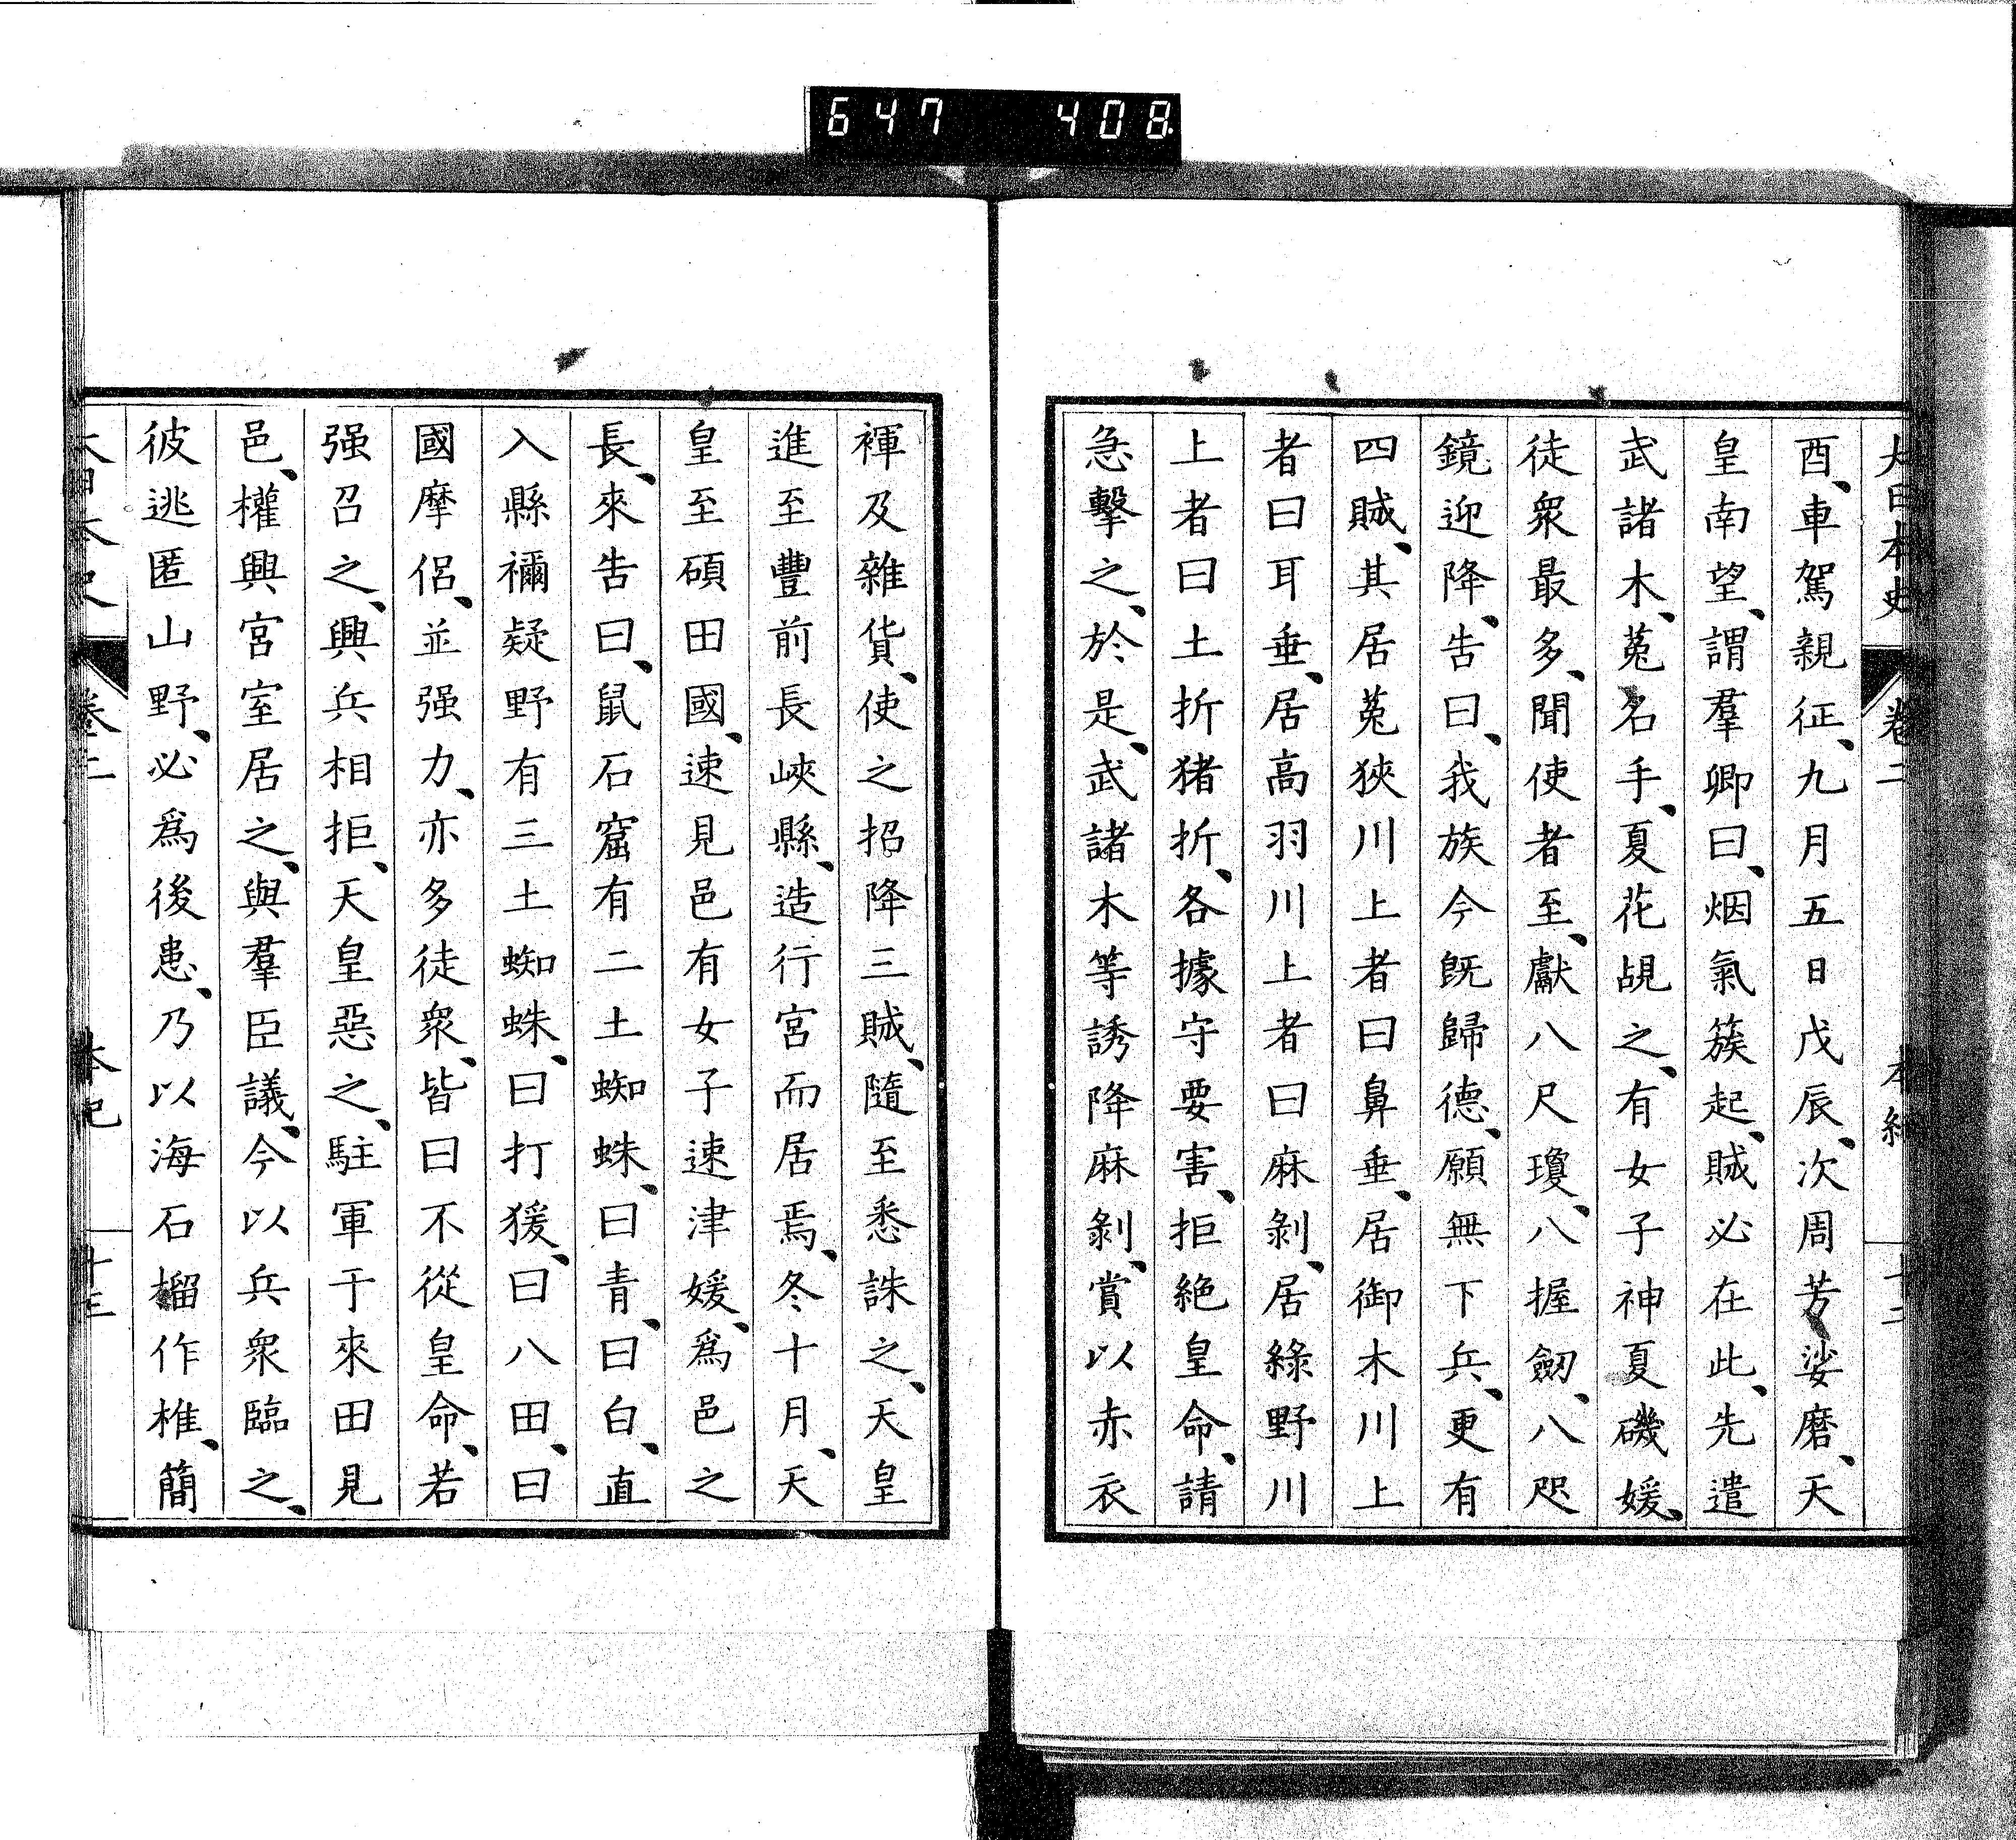 647 408
大日本史 卷二 本紀 十二
酉、車駕親征、九月五日戊辰、次周芳娑磨、天
皇南望、謂羣卿曰、烟氣簇起、賊必在此、先遣
武諸木、菟名手、夏花覘之、有女子神夏磯媛、
徒衆最多、聞使者至、獻八尺瓊、八握劒、八咫
鏡迎降、告曰、我族今既歸德、願無下兵、更有
四賊、其居菟狹川上者曰鼻垂、居御木川上
者曰耳垂、居高羽川上者曰麻剝、居綠野川
上者曰土折猪折、各據守要害、拒絕皇命、請
急擊之、於是、武諸木等誘降麻剝、賞以赤衣
褌及雜貨、使之招降三賊、隨至悉誅之、天皇
進至豐前長峽縣、造行宮而居焉、冬十月、天
皇至碩田國、速見邑有女子速津媛、爲邑之
長、來告曰、鼠石窟有二土蜘蛛、曰青、曰白、直
入縣禰疑野有三土蜘蛛、曰打猨、曰八田、曰
國摩侶、並强力、亦多徒衆、皆曰不從皇命、若
强召之、興兵相拒、天皇惡之、駐軍于來田見
邑、權興宮室居之、與羣臣議、今以兵衆臨之、
彼逃匿山野、必爲後患、乃以海石榴作椎、簡
大日本史 卷二 本紀 十三